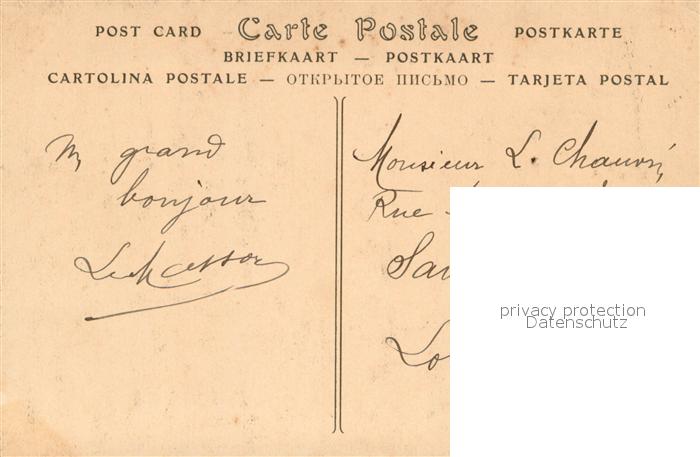 POST CARD Carte Postale POSTKARTE
BRIEFKAART — POSTKAART
CARTOLINA POSTALE — ОТКРЫТОЕ ПИСЬМО — TARJETA POSTAL
grand
bonjour
Monsieur L.
Rue
privacy protection
Datenschutz